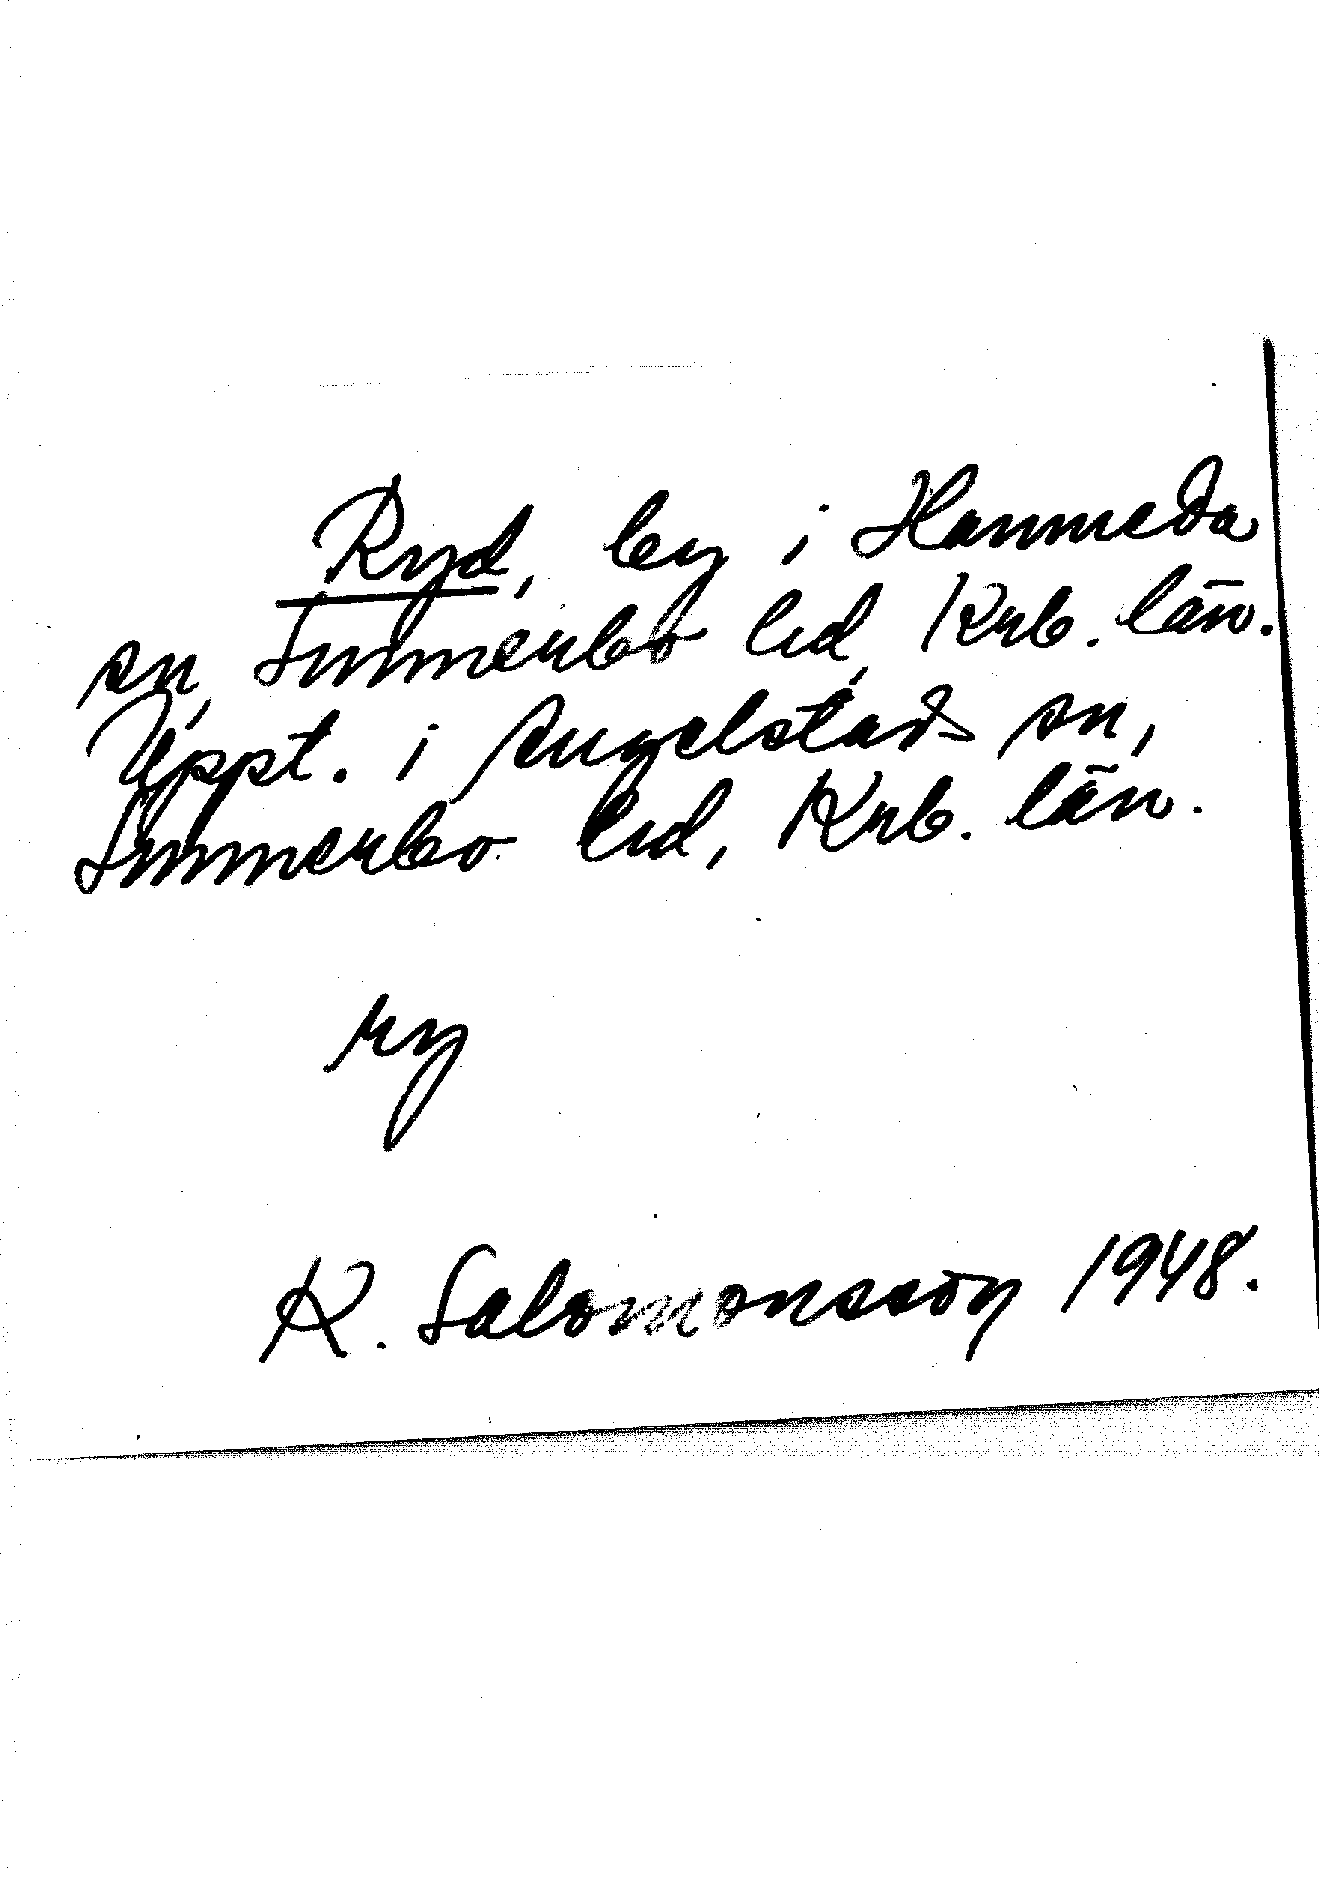 Ryd, by i Hanneda
sn, Sunnerbo hd, Krb. län.
Uppt. i Angelstads sn,
Sunnerbo hd, Krb. län.
ry
K. Salomonsson 1948.